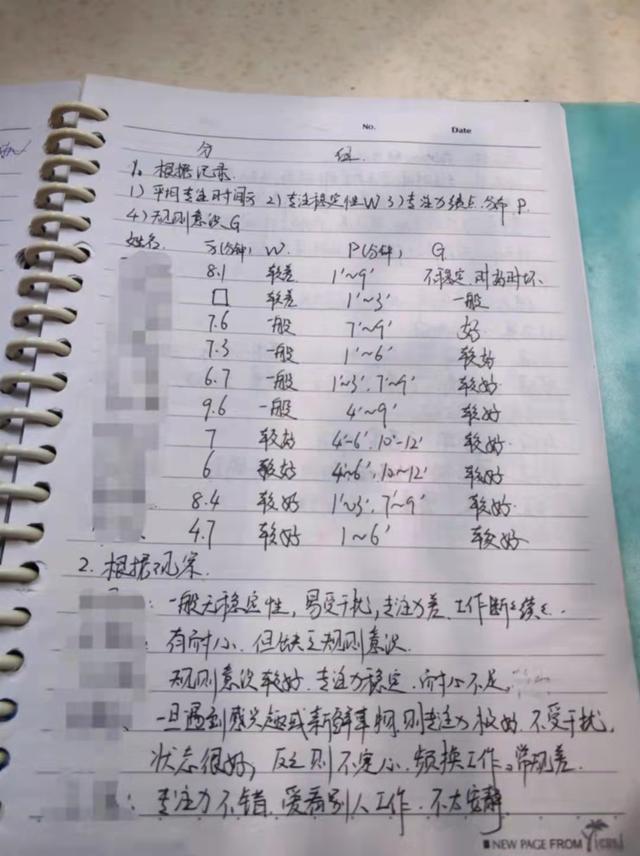 No. Date
分 经
1. 根据记录.
1) 平均专注时间 2) 专注稳定性W 3) 专注力 分布. P.
4) 规则意识G
姓名. (分钟) W. P(分钟) G
8.1 较差 1'~9' 不稳定.时高时坏.
□ 较差 1'~3' 一般
7.6 一般 7'~9' 好
7.3 一般 1'~6' 较好
6.7 一般 1'~3', 7'~9' 较好
9.6 一般 4'~9' 较好
7 较好 4'-6', 10'-12' 较好.
6 较好 4'~6', 10~12' 较好
8.4 较好 1'~3', 7'~9' 较好
4.7 较好 1~6' 较好
2. 根据观察.
: 一般无稳定性, 易受干扰, 专注力差. 工作断断续续..
有耐心. 但缺乏规则意识.
规则意识较好. 专注力稳定. 耐心不足.
一旦遇到感兴趣或新鲜事物, 则专注力极好. 不受干扰,
状态很好; 反之则不定心. 频换工作。常规差.
: 专注力不错. 爱看别人工作. 不太安静
NEW PAGE FROM